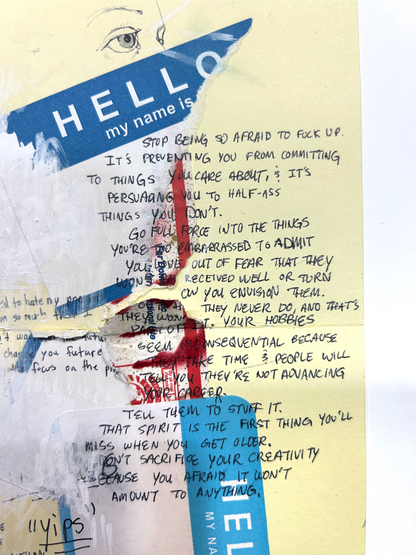 HELLO
my name is
STOP BEING SO AFRAID TO FUCK UP.
IT'S PREVENTING YOU FROM COMMITTING
TO THINGS YOU CARE ABOUT, & IT'S
PERSUADING YOU TO HALF-ASS
THINGS YOU DON'T.
GO FULL FORCE INTO THE THINGS
YOU'RE SO EMBARRASSED TO ADMIT
YOU LOVE OUT OF FEAR THAT THEY
WON'T BE RECEIVED WELL OR TURN
YOU ENVISION THEM.
THEY NEVER DO, AND THAT'S
PART OF IT. YOUR HOBBIES
SEEM INCONSEQUENTIAL BECAUSE
THEY TAKE TIME & PEOPLE WILL
TELL YOU THEY'RE NOT ADVANCING
YOUR CAREER.
TELL THEM TO STUFF IT.
THAT SPIRIT IS THE FIRST THING YOU'LL
MISS WHEN YOU GET OLDER.
DON'T SACRIFICE YOUR CREATIVITY
BECAUSE YOU AFRAID IT WON'T
AMOUNT TO ANYTHING.
to hate my
so much
you future
on the
"yips"
HEL
MY NA